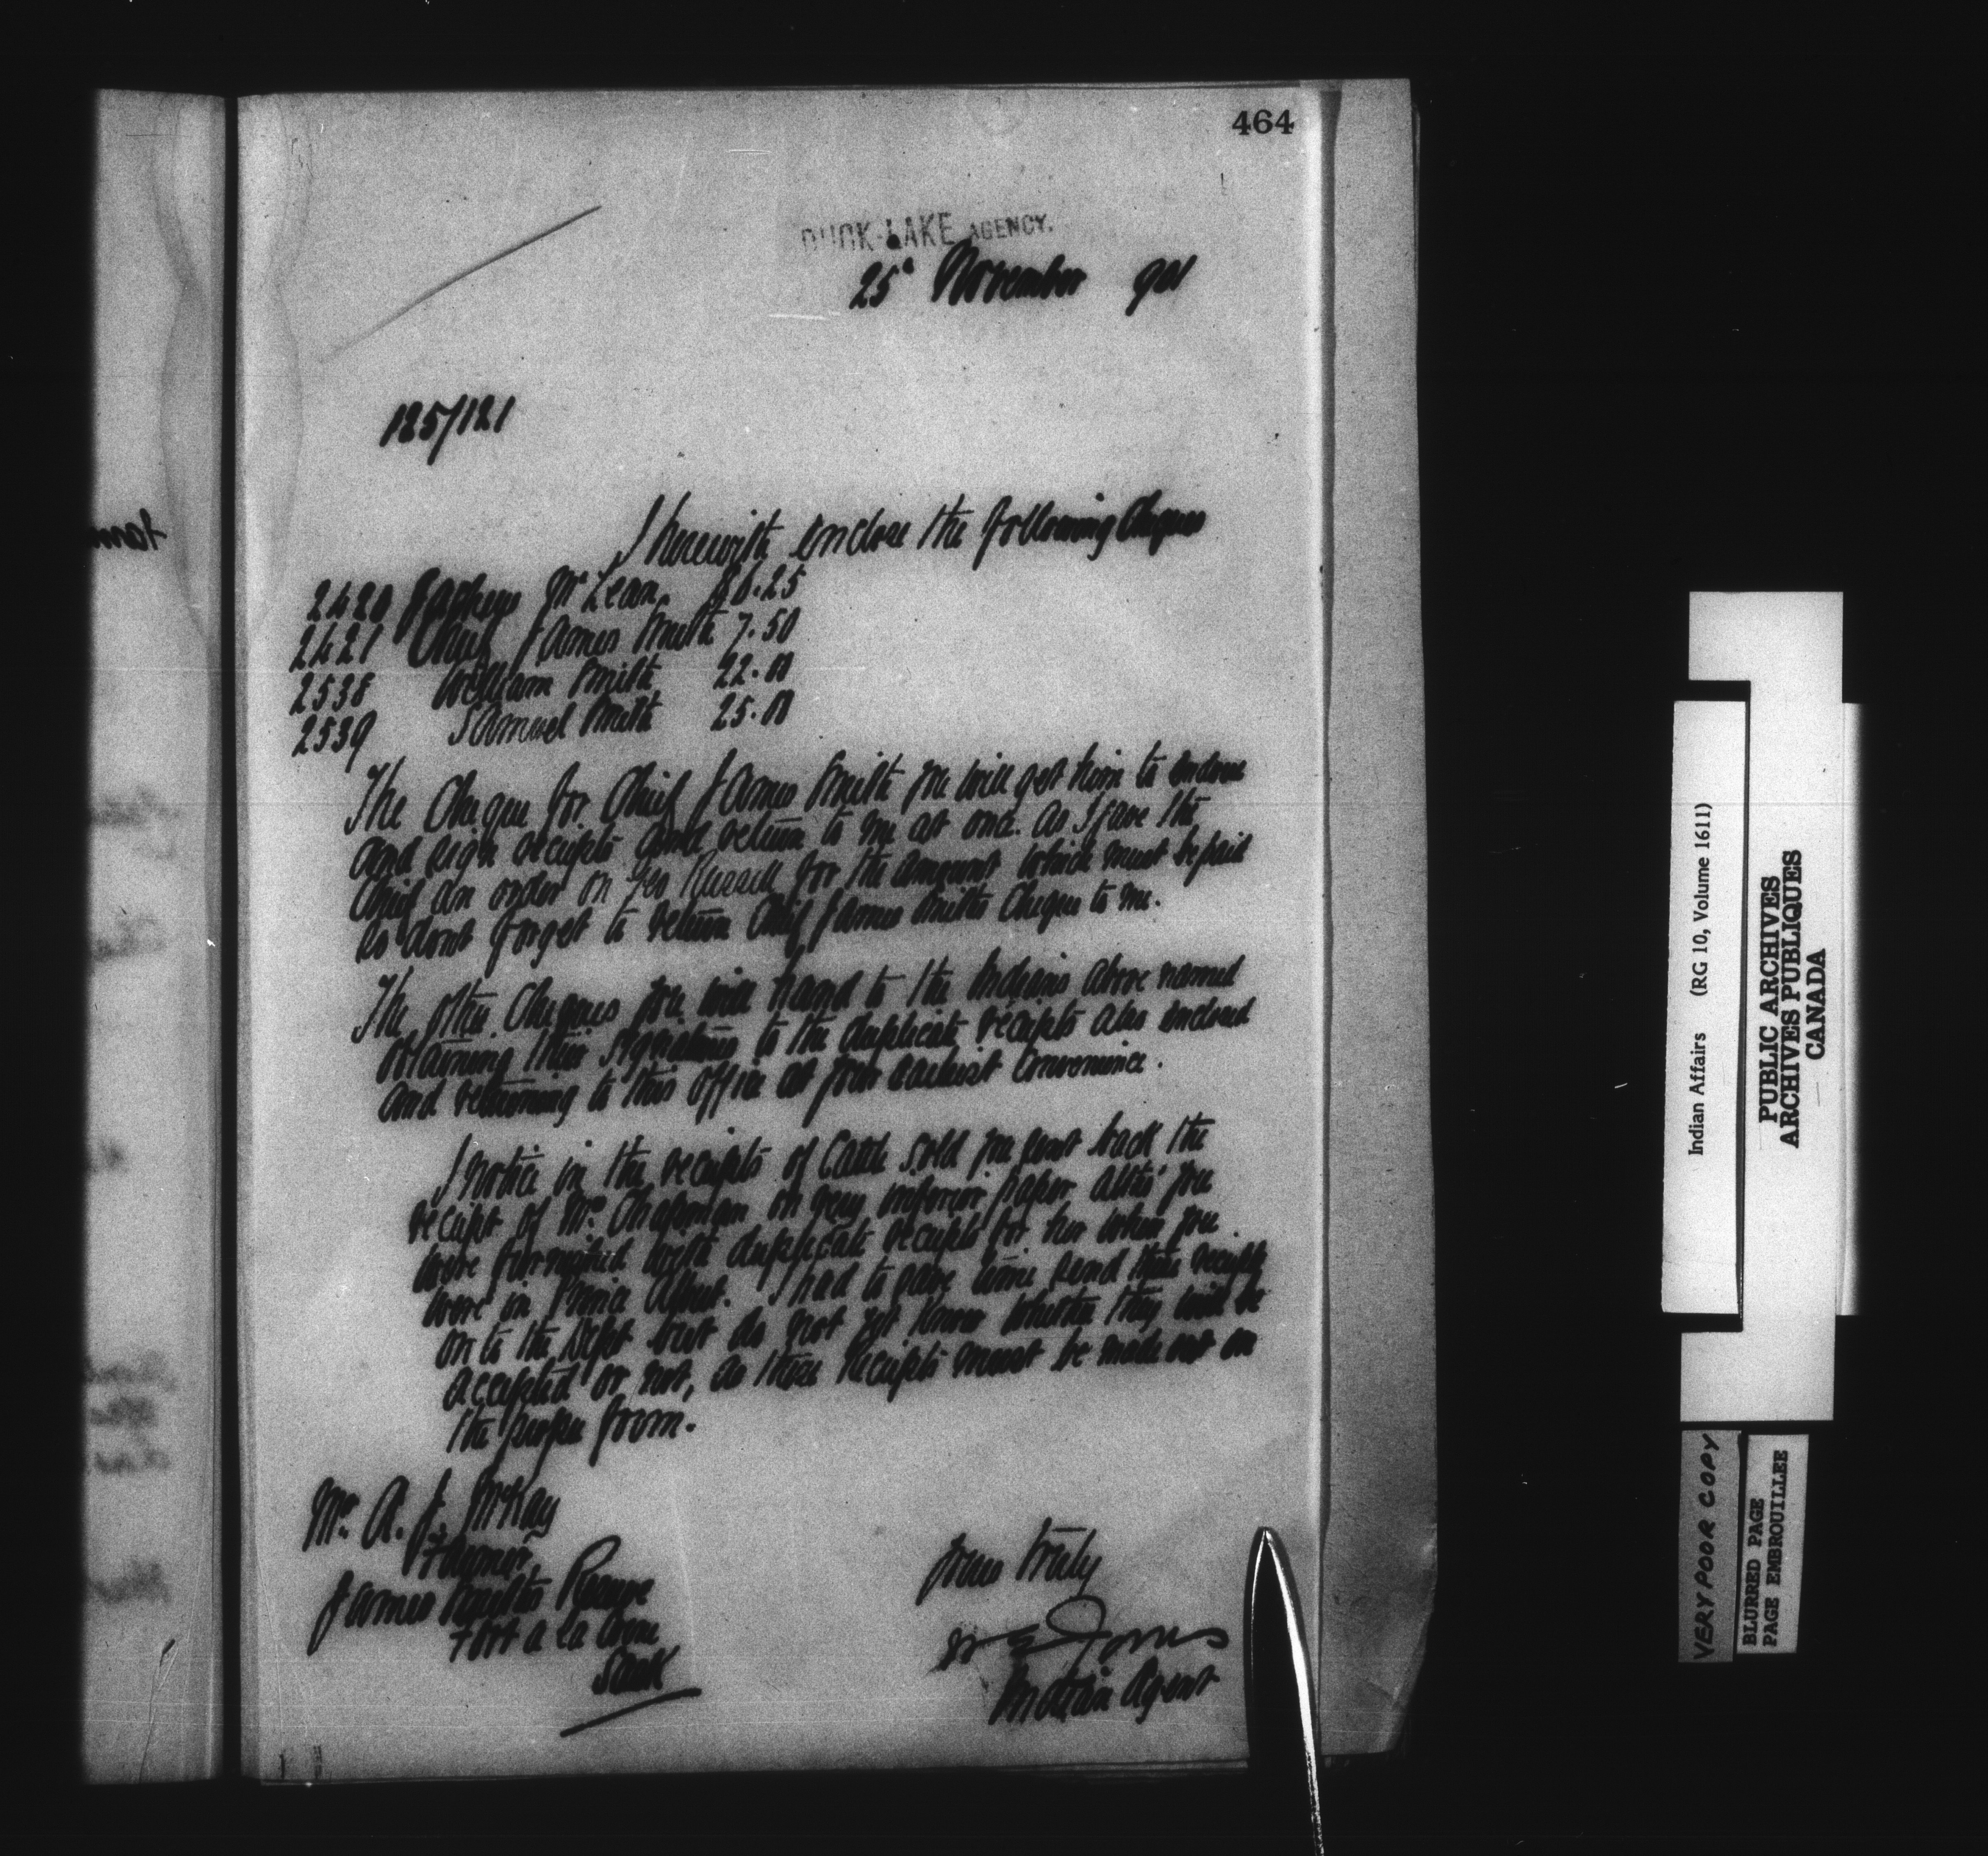 464
DUCK LAKE AGENCY.
25th November 901
125/121
I herewith enclose the following Cheques
2420 Mc Lean $6.25
2421 Chief James Smith 7.50
2538 William Smith 22.00
2539 Samuel Smith 25.00
The Cheque for Chief James Smith you will get him to endorse
and sign receipts and return to me at once. as I gave the
Chief an order on Geo Russell for the amount which must be paid
so dont forget to return Chief James Smiths Cheque to me.
The other Cheques you will hand to the Indians above named
obtaining their signatures to the duplicate receipts also enclosed
and returning to this office at your earliest convenience.
I notice in the receipts of Cattle sold you sent back the
receipt of Mrs. Chapman on very inferior paper altho' you
were furnished with duplicate receipts for her when you
were in Prince Albert. I had to save time send this receipt
on to the Dept but do not yet know whether they will be
accepted or not, as these Receipts must be made out on
the proper form.
Mr. A. J. McKay
Farmer
James Smiths Reserve
Fort a la Corne
Sask
Yours truly
W E Jones
Indian Agent
Indian Affairs (RG 10, Volume 1611)
PUBLIC ARCHIVES
ARCHIVES PUBLIQUES
CANADA
VERY POOR COPY
BLURRED PAGE
PAGE EMBROUILLEE